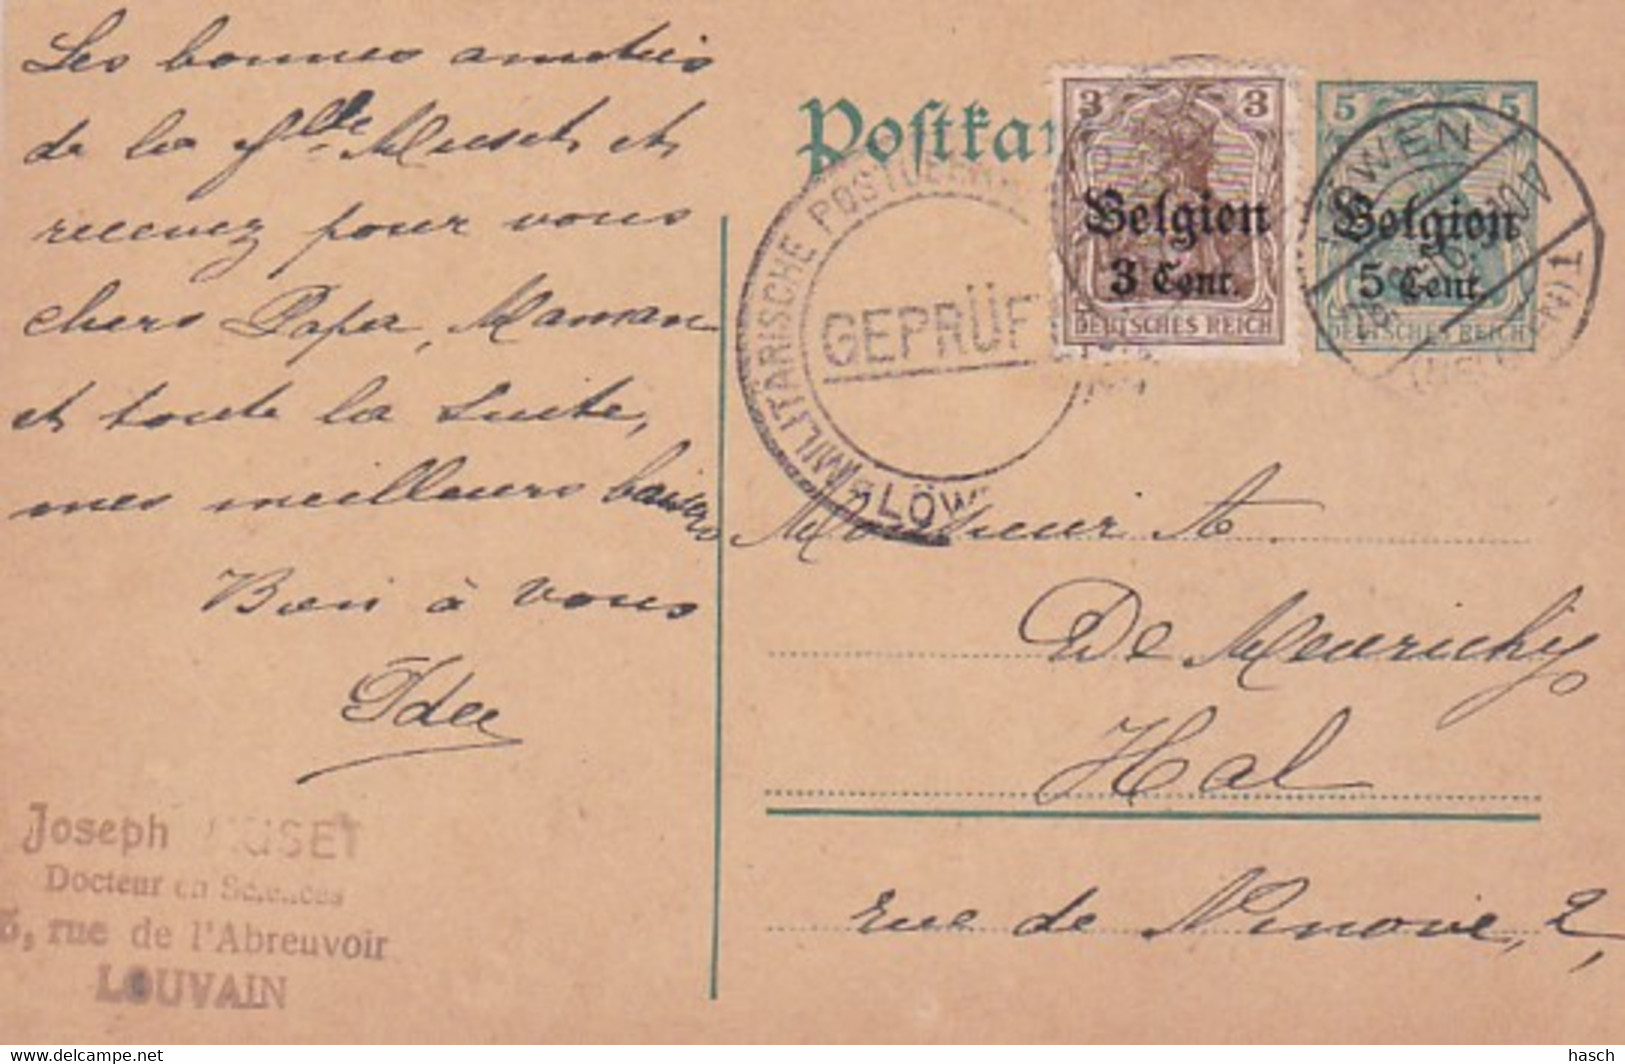 Les bonnes amitiés
de la flle Muset, et
recevez pour vous
chers Papa, Maman
et toute la suite,
mes meilleurs baisers
Bien à vous
Joseph MUSET
Docteur en Sciences
rue de l'Abreuvoir
LOUVAIN
Postkar
3 3
Belgien
3 Cent.
DEUTSCHES REICH
5 5
Belgien
5 Cent.
DEUTSCHES REICH
LÖWEN
MILITÄRISCHE
GEPRÜF
LÖW
Monsieur A.
De Meurichy
Hal
rue de Ninove, 2,
www.delcampe.net
hasch